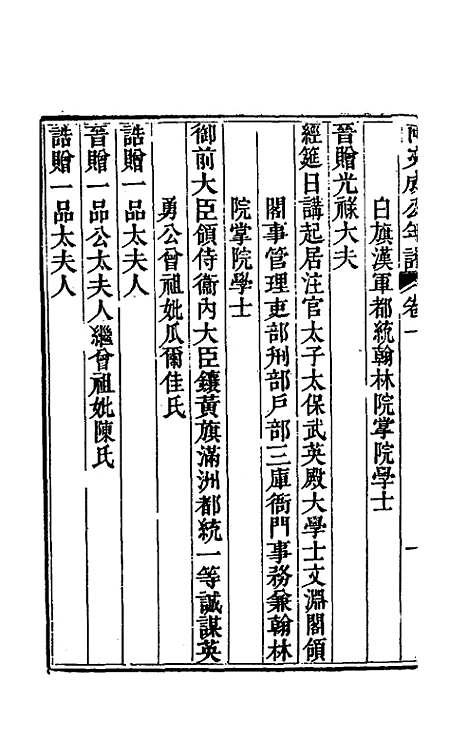 阿文成公年譜 卷一
白旗漢軍都統翰林院掌院學士
晉贈光祿大夫
經筵日講起居注官太子太保武英殿大學士文淵閣領
閣事管理吏部刑部戶部三庫衙門事務兼翰林
院掌院學士
御前大臣領侍衞內大臣鑲黃旗滿洲都統一等誠謀英
勇公曾祖妣瓜爾佳氏
誥贈一品太夫人
晉贈一品公太夫人繼曾祖妣陳氏
誥贈一品太夫人